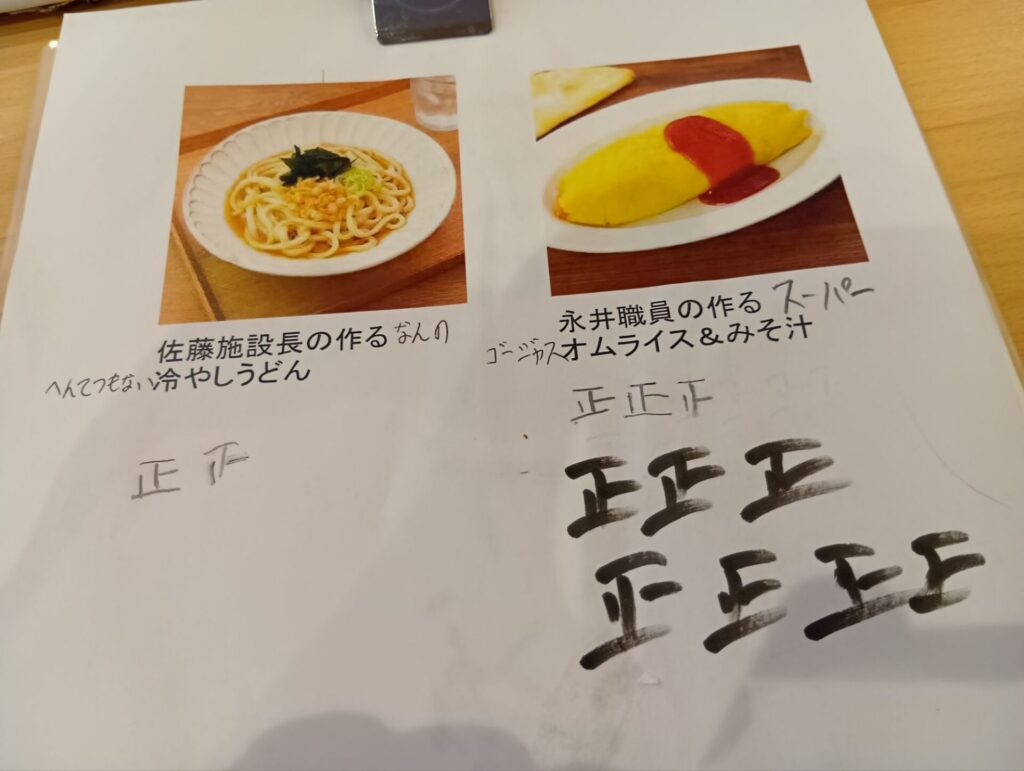 佐藤施設長の作るなんの
へんてつもない冷やしうどん
正 正
永井職員の作る スーパー
ゴージャスオムライス&みそ汁
正 正 正
正 正 正
正 正 正 正